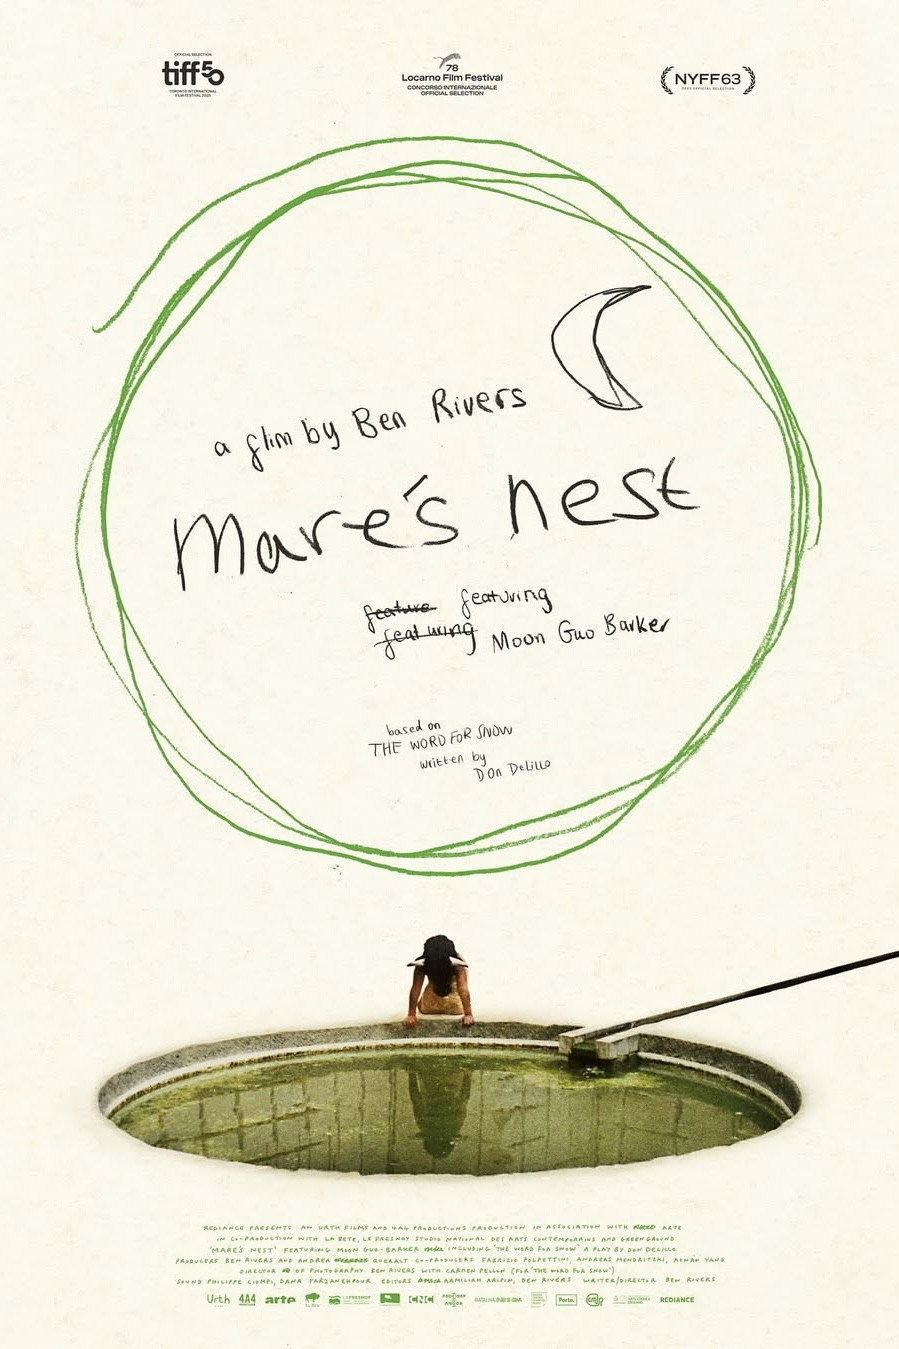 OFFICIAL SELECTION
tiff50
TORONTO INTERNATIONAL
FILM FESTIVAL 2025
78
Locarno Film Festival
CONCORSO INTERNAZIONALE
OFFICIAL SELECTION
NYFF63
2025 OFFICIAL SELECTION
a film by Ben Rivers
Mare's Nest
feature featuring
featuring Moon Guo Barker
based on
THE WORD FOR SNOW
written by
DON DeLILLO
REDIANCE PRESENTS AN URTH FILMS AND 4A4 PRODUCTIONS PRODUCTION IN ASSOCIATION WITH ARTE
IN CO-PRODUCTION WITH LA BETE, LE FRESNOY STUDIO NATIONAL DES ARTS CONTEMPORAINS AND GREENGROUND
'MARE'S NEST' FEATURING MOON GUO-BARKER INCLUDING 'THE WORD FOR SNOW' A PLAY BY DON DELILLO
PRODUCERS BEN RIVERS AND ANDREA QUERALT CO-PRODUCERS FABRIZIO POLPETTINI, ANDREAS MENDRITZKI, AONAN YANG
DIRECTOR OF PHOTOGRAPHY BEN RIVERS WITH CARMEN PELLON (FOR 'THE WORD FOR SNOW')
SOUND PHILIPPE CIOMPI, DANIA FARZANEHPOUR EDITORS ARMILIAH ARIPIN, BEN RIVERS WRITER/DIRECTOR BEN RIVERS
Urth 4A4 arte LE FRESNOY CNC REDIANCE